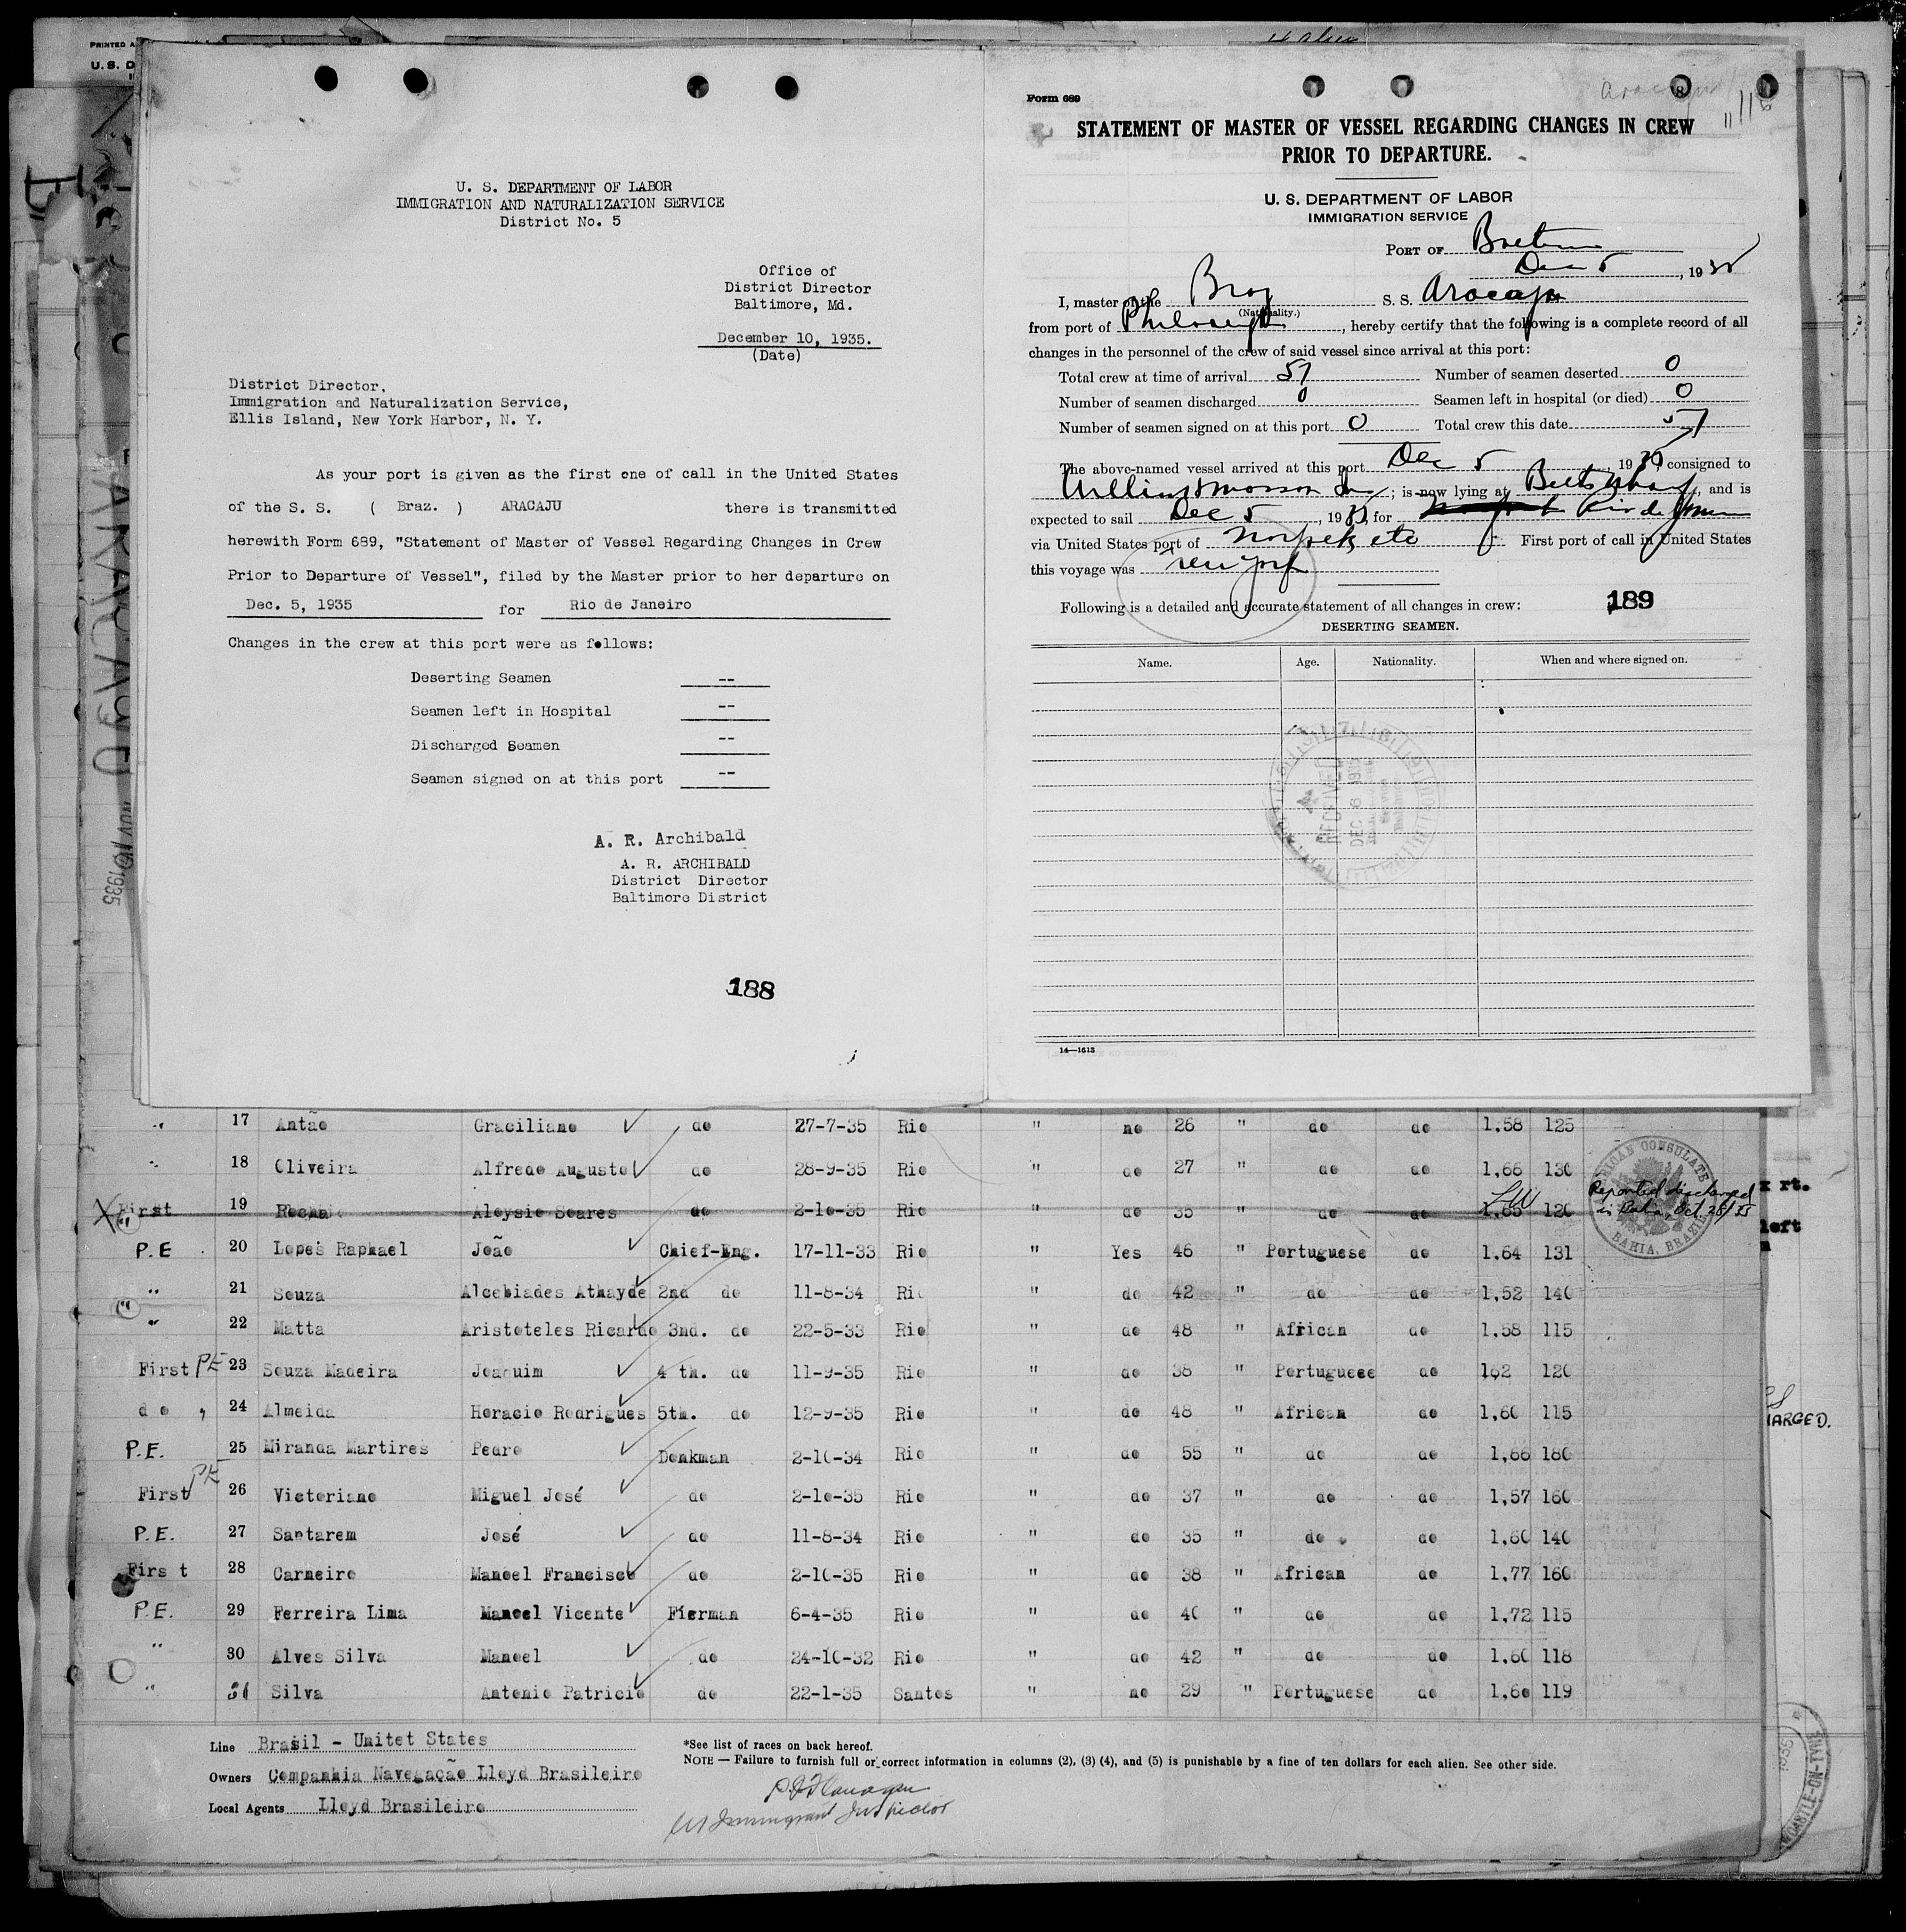 PRINTED
U. S. D
U. S. DEPARTMENT OF LABOR
IMMIGRATION AND NATURALIZATION SERVICE
District No. 5
Office of
District Director
Baltimore, Md.
December 10, 1935.
(Date)
District Director,
Immigration and Naturalization Service,
Ellis Island, New York Harbor, N. Y.
As your port is given as the first one of call in the United States
of the S. S. ( Braz. ) ARACAJU there is transmitted
herewith Form 689, "Statement of Master of Vessel Regarding Changes in Crew
Prior to Departure of Vessel", filed by the Master prior to her departure on
Dec. 5, 1935 for Rio de Janeiro
Changes in the crew at this port were as follows:
Deserting Seamen --
Seamen left in Hospital --
Discharged Seamen --
Seamen signed on at this port --
A. R. Archibald
A. R. ARCHIBALD
District Director
Baltimore District
188
Form 689
STATEMENT OF MASTER OF VESSEL REGARDING CHANGES IN CREW
PRIOR TO DEPARTURE.
U. S. DEPARTMENT OF LABOR
IMMIGRATION SERVICE
PORT OF
Dec 5, 1935
I, master of the Braz S. S. Aracaju
(Nationality.)
from port of, hereby certify that the following is a complete record of all
changes in the personnel of the crew of said vessel since arrival at this port:
Total crew at time of arrival 57 Number of seamen deserted 0
Number of seamen discharged 0 Seamen left in hospital (or died) 0
Number of seamen signed on at this port 0 Total crew this date 57
The above-named vessel arrived at this port Dec 5, 1935, consigned to
; is now lying at, and is
expected to sail Dec 5, 1935, for Rio de Janeiro
via United States port of Norfolk etc First port of call in United States
this voyage was New York
Following is a detailed and accurate statement of all changes in crew: 189
DESERTING SEAMEN.
Name. Age. Nationality. When and where signed on.
RECEIVED
DEC 6 1935
14—1613
17 Antão Graciliano do 27-7-35 Rio " no 26 " do do 1,58 125
18 Oliveira Alfredo Augusto do 28-9-35 Rio " do 27 " do do 1,66 130
First 19 Rocha Aloysio Soares do 2-10-35 Rio " do 35 " do do 1.65 120 Reported discharged
in Bahia, Oct 28/35
AMERICAN CONSULATE
BAHIA, BRAZIL
P.E. 20 Lopes Raphael João Chief-Eng. 17-11-33 Rio " Yes 46 " Portuguese do 1.64 131
" 21 Souza Alcebiades Athayde 2nd do 11-8-34 Rio " do 42 " do do 1,52 140
" 22 Matta Aristoteles Ricardo 3nd. do 22-5-33 Rio " do 48 " African do 1,58 115
First PE 23 Souza Madeira Joaquim 4 th. do 11-9-35 Rio " do 38 " Portuguese do 162 120
do , 24 Almeida Horacio Rodrigues 5th. do 12-9-35 Rio " do 48 " African do 1,60 115
P.E. 25 Miranda Martires Pedro Donkman 2-10-34 Rio " do 55 " do do 1,66 180
First PE 26 Victoriano Miguel José do 2-10-35 Rio " do 37 " do do 1,57 160
P.E. 27 Santarem José do 11-8-34 Rio " do 35 " do do 1,60 140
First 28 Carneiro Manoel Francisco do 2-10-35 Rio " do 38 " African do 1,77 160
P.E. 29 Ferreira Lima Manoel Vicente Fierman 6-4-35 Rio " do 40 " do do 1,72 115
" 30 Alves Silva Manoel do 24-10-32 Rio " do 42 " do do 1,60 118
" 31 Silva Antonio Patricio do 22-1-35 Santos " no 29 " Portuguese do 1,60 119
Line Brasil - Unitet States
Owners Companhia Navegação Lloyd Brasileiro
Local Agents Lloyd Brasileiro
*See list of races on back hereof.
NOTE — Failure to furnish full or correct information in columns (2), (3) (4), and (5) is punishable by a fine of ten dollars for each alien. See other side.
Immigrant Inspector
rt.
left
HARGED.
ARACAJU
NOV 10 1935